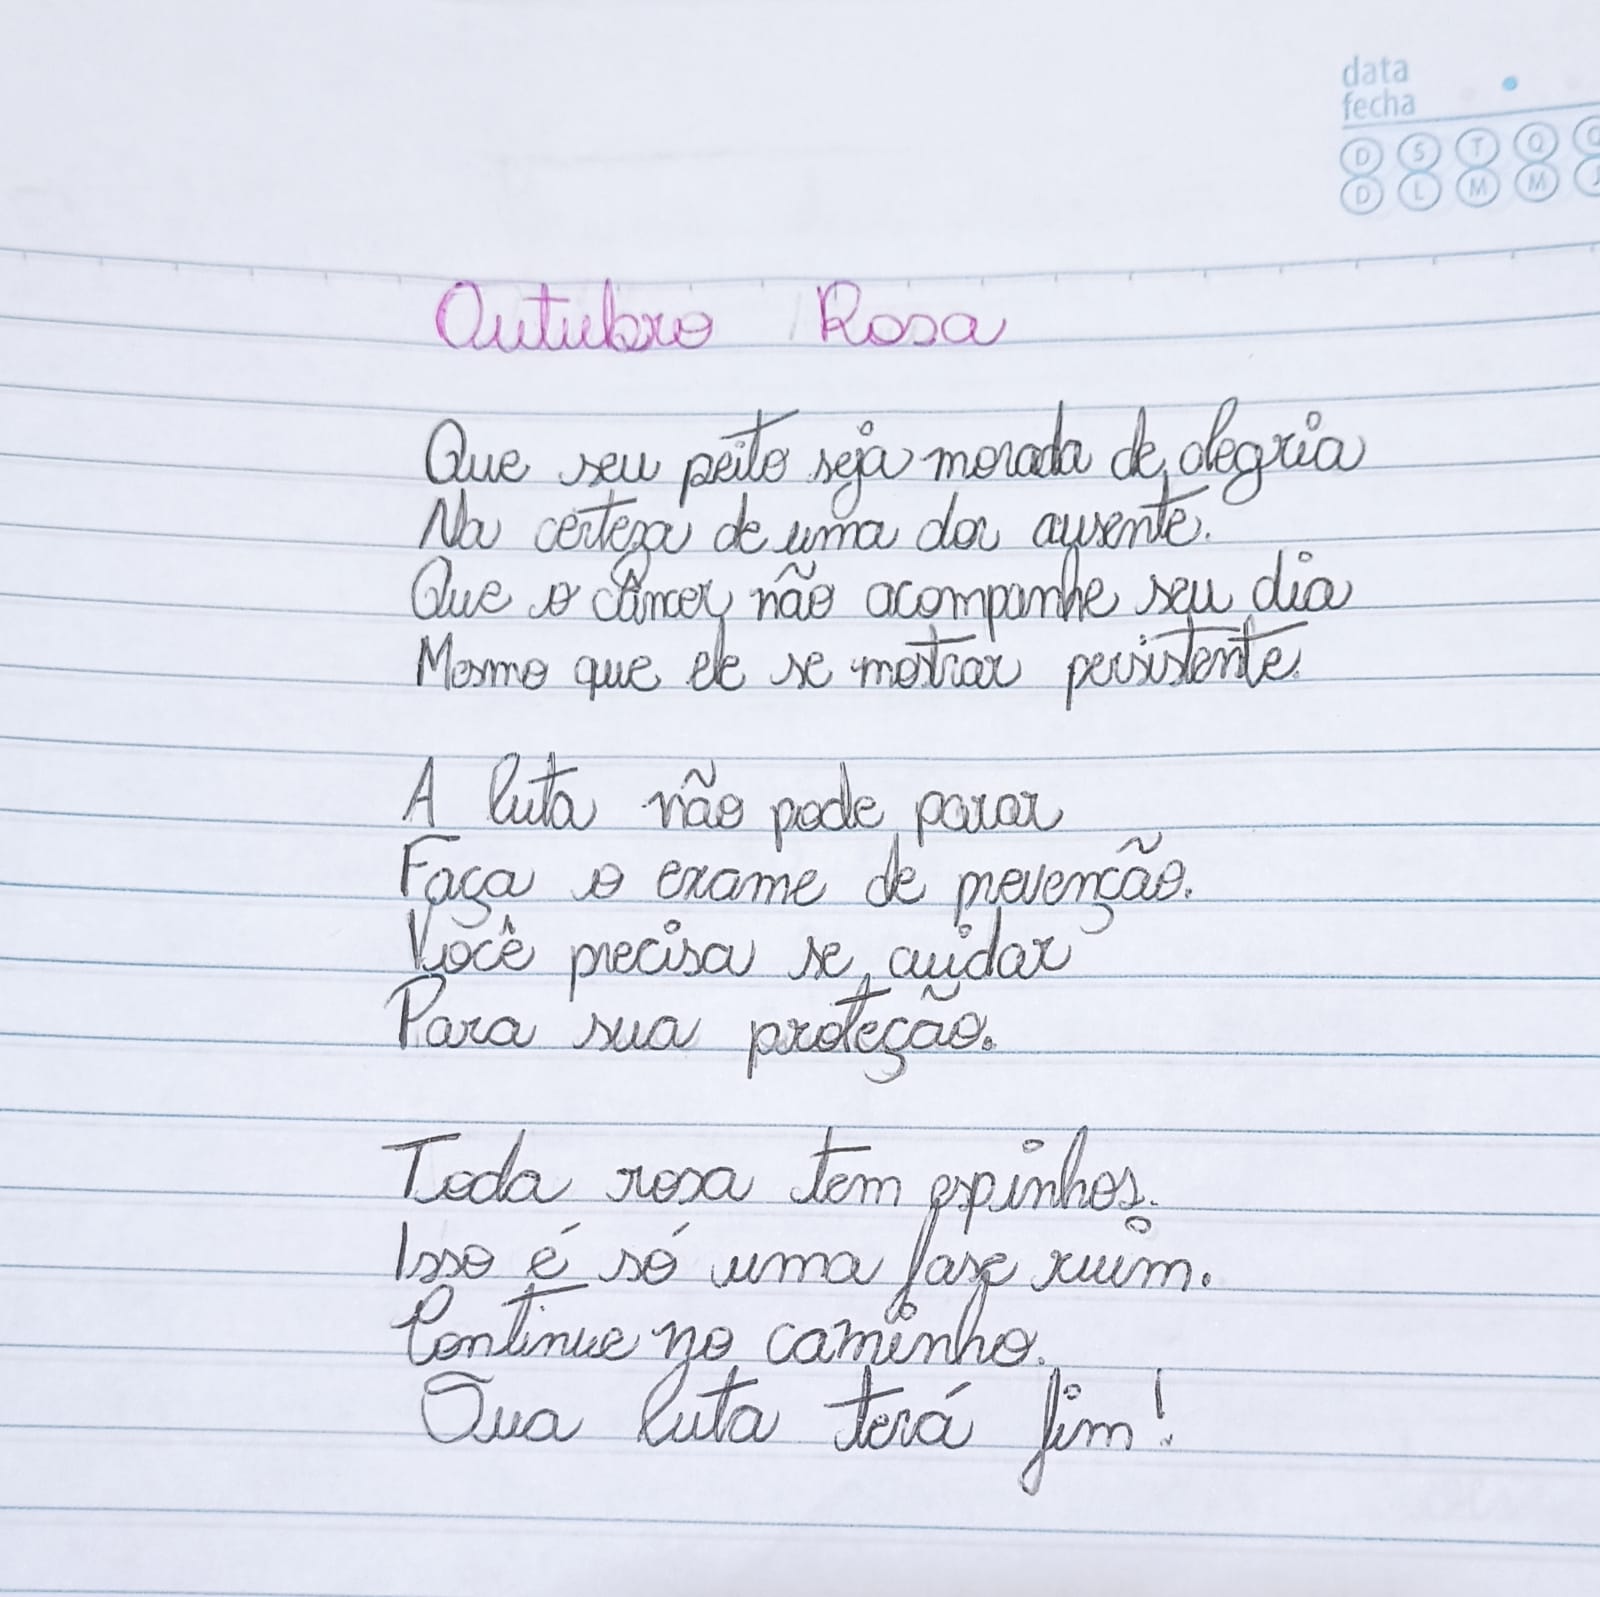 data
fecha
D S T Q Q
D L M M J
Outubro Rosa
Que seu peito seja morada de alegria
Na certeza de uma dor ausente.
Que o câncer não acompanhe seu dia
Mesmo que ele se mostrar persistente.
A luta não pode parar
Faça o exame de prevenção.
Você precisa se cuidar
Para sua proteção.
Toda rosa tem espinhos.
Isso é só uma fase ruim.
Continue no caminho.
Sua luta terá fim!